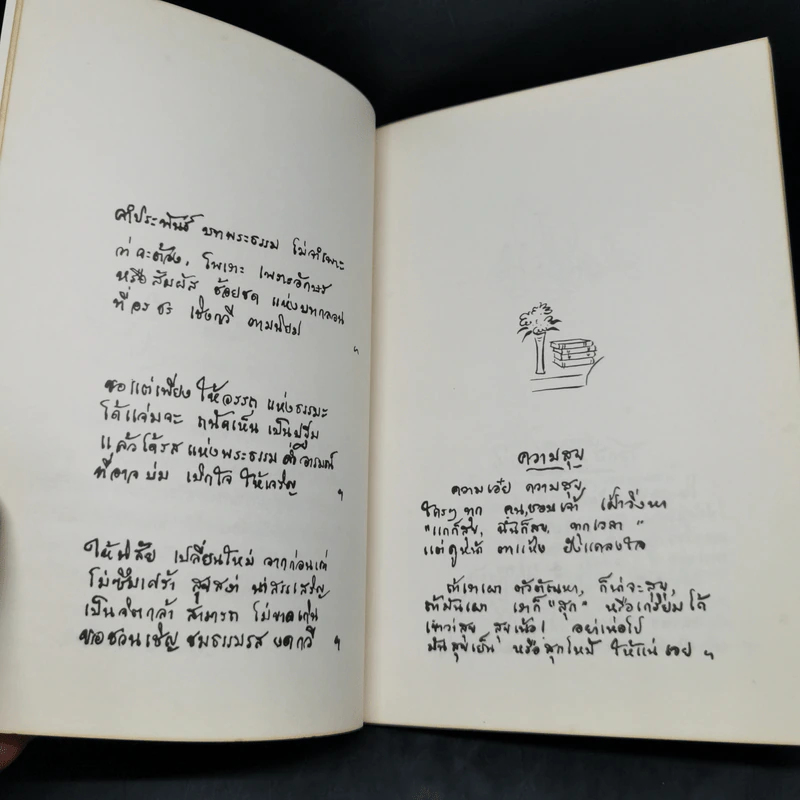 คำประพันธ์ บทพระธรรม ไม่จำเพาะ
ว่าจะต้อง, ไพเราะ เพราะอักษร
หรือสัมผัส ช้อยชด แห่งบทกลอน
ที่อรชร เชิงกวี ตามนิยม ฯ
ขอแต่เพียง ให้อรรถ แห่งธรรมะ
ได้แจ่มจะ ถนัดเห็น เป็นปฐม
แล้วได้รส แห่งพระธรรม ด่ำอารมณ์
ที่อาจบ่ม เบิกใจ ให้เจริญ ฯ
ให้นิสัย เปลี่ยนใหม่ จากก่อนเก่า
ไม่ซึมเศร้า สุขสง่า น่าสรรเสริญ
เป็นจิตกล้า สามารถ ไม่ขาดเกิน
ขอชวนเชิญ ชมธรรมรส บทกวี ฯ
ความสุข
ความเอ๋ย ความสุข,
ใครๆทุก คน,ชอบเจ้า เฝ้าวิ่งหา
"แกก็สุข, ฉันก็สุข, ทุกเวลา"
แต่ดูหน้า ตาแห้ง ยังแคลงใจ
ถ้าเราเผา ตัวตัณหา, ก็น่าจะสุข,
ถ้ามันเผา เราก็ "สุก" หรือเกรียมได้
เขาว่าสุข สุขเน้อ! อย่าเห่อไป
มันสุขเย็น หรือสุกไหม้ ให้แน่เอย ฯ